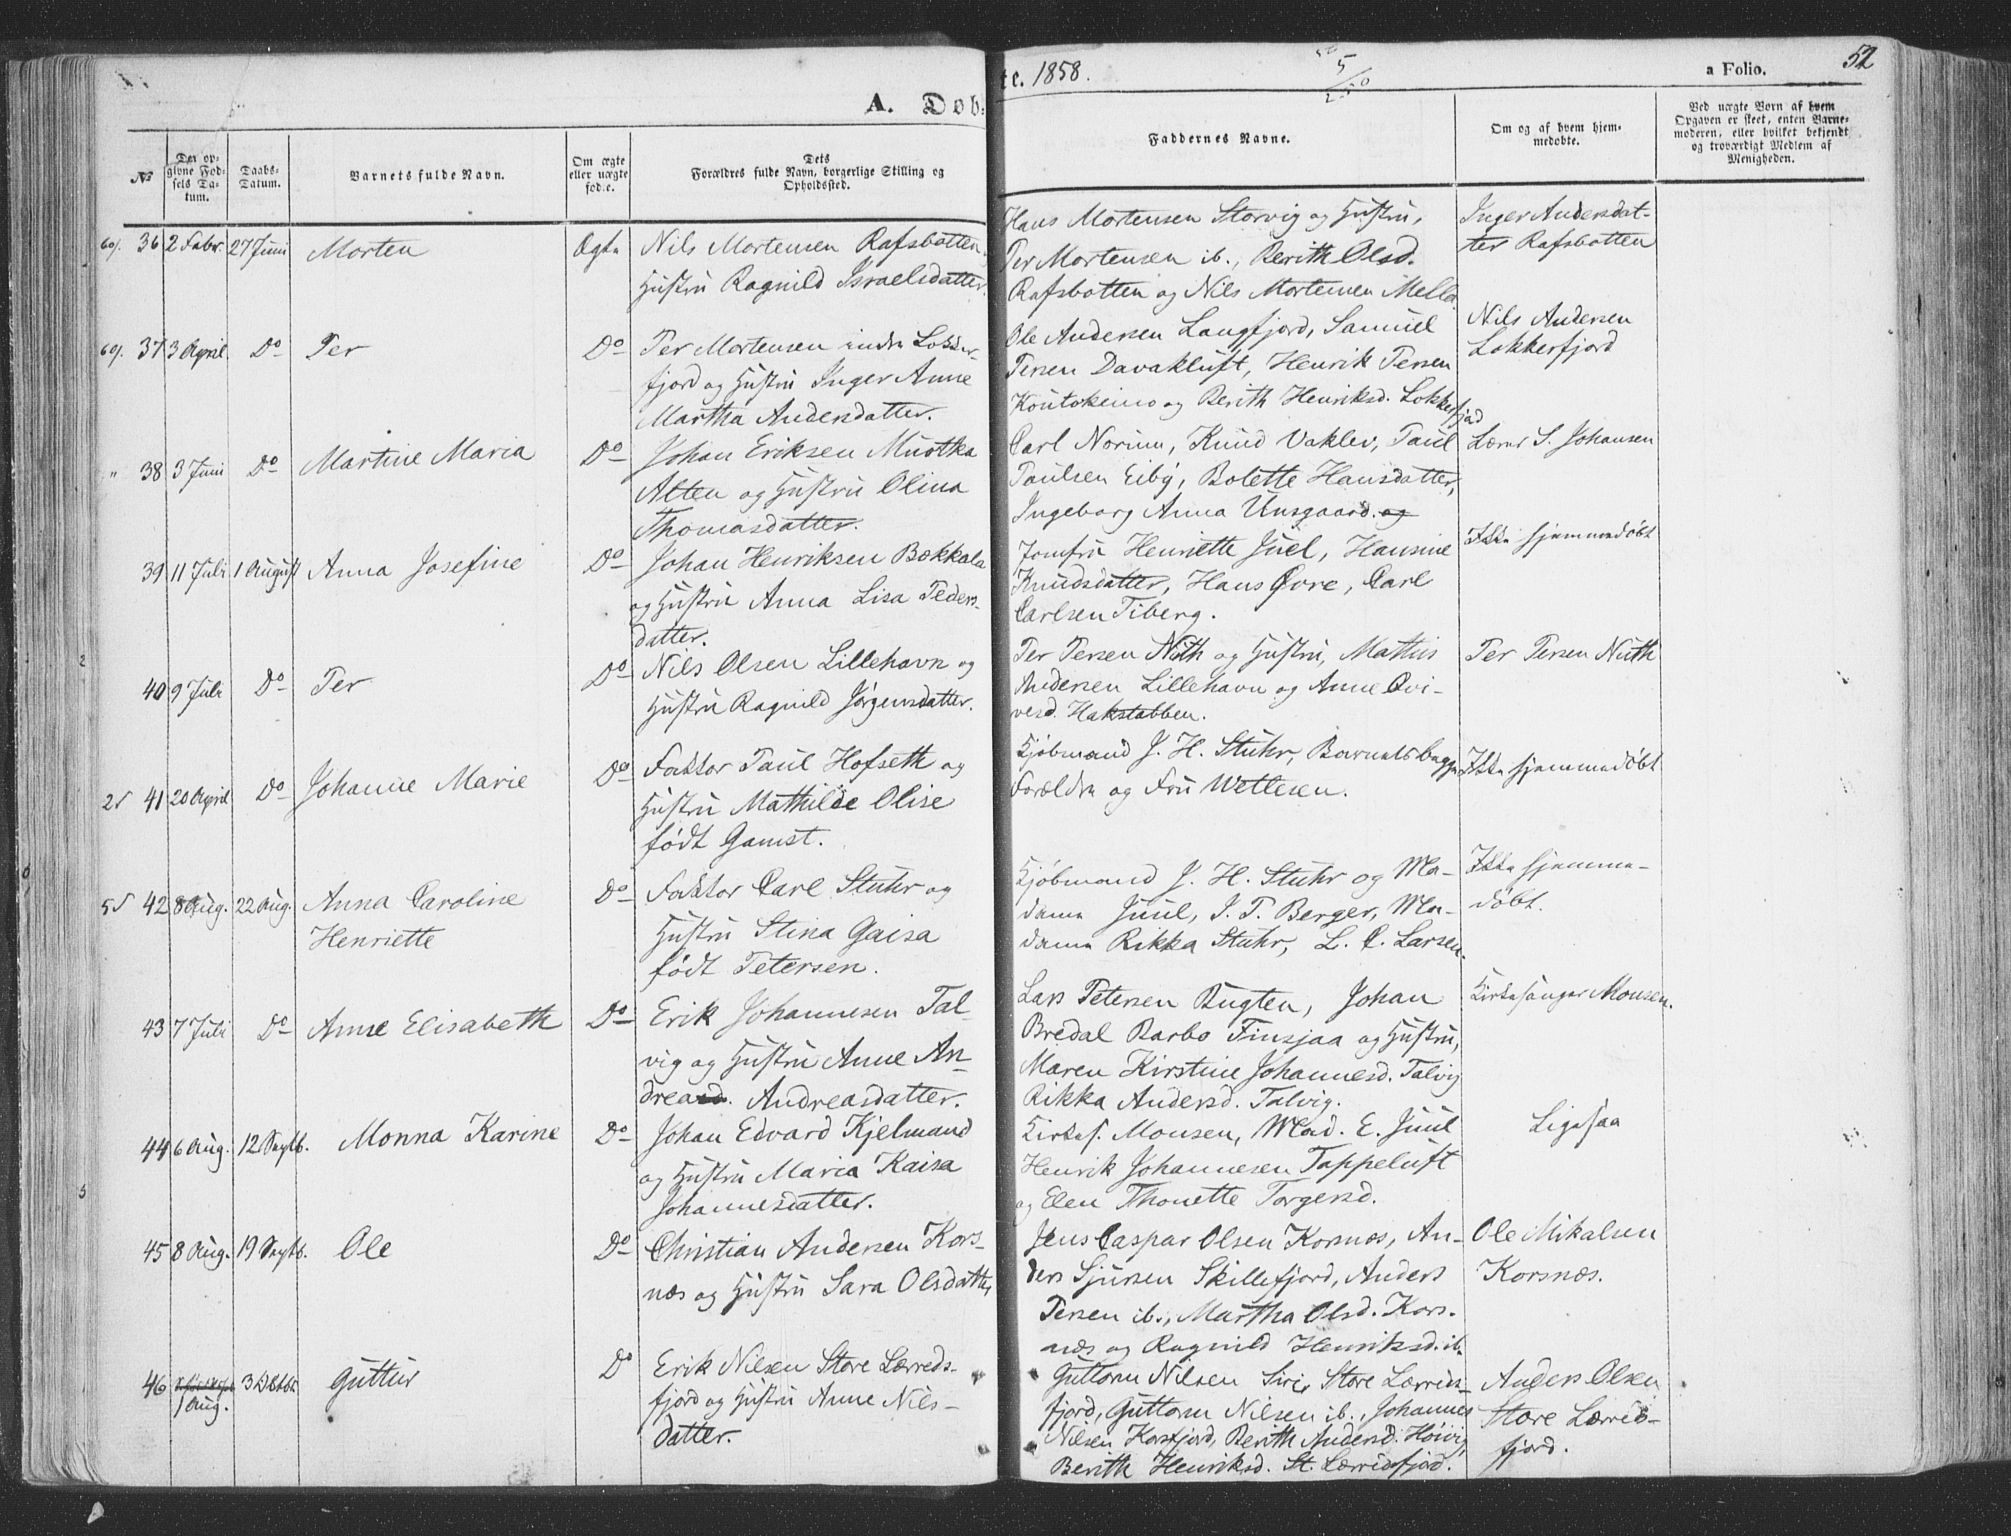 A. Døb-
te. 1858.
5/250
a Folio.
52
No
Den op-
givne Fød-
sels Da-
tum.
Daabs-
Datum.
Barnets fulde Navn.
Om ægte
eller uægte
fød.e.
Dets
Forældres fulde Navn, borgerlige Stilling og
Opholdssted.
Faddernes Navne.
Om og af hvem hjem-
medøbte.
Ved uægte Børn af hvem
Opgaven er skeet, enten Barne-
moderen, eller hvilket bekjendt
og troværdigt Medlem af
Menigheden.
36 2 Febr. 27 Juni Morten Ægte
Nils Mortensen Rafsbotten
Hustru Ragnild Israelsdatter.
Hans Mortensen Storvig og Hustru,
Per Mortensen ib., Berith Olsd.
Rafsbotten og Nils Mortensen Melle
Inger Andersdat-
ter Rafsbotten
37 3 April. Do Per Do
Per Mortensen indre Lokker-
fjord og Hustru Inger Anne
Martha Andersdatter.
Ole Andersen Langfjord, Samuel
Persen Davakluft, Henrik Persen
Koutokeino og Berith Henriksd. Lokkerfjord
Nils Andersen
Lokkerfjord
" 38 3 Juni Do Martine Maria Do
Johan Eriksen Muotka
Alten og Hustru Olina
Thomasdatter.
Carl Norinn, Knud Vaklev, Paul
Paulsen Eiby, Bolette Hansdatter,
Ingeborg Anna Unsgaard. og
Lærer S. Johansen
39 11 Juli 1 August Anna Josefine Do
Johan Henriksen Bækkala
og Hustru Anna Lisa Peders-
datter.
Jomfru Henriette Juel, Hansine
Knudsdatter, Hans Øvre, Carl
Carlsen Tiberg.
Ikke hjemmedøbt
40 9 Juli Do Per Do
Nils Olsen Lillehavn og
Hustru Ragnild Jørgensdatter.
Per Persen Nuth og Hustru, Mathis
Andersen Lillehavn og Anne Qvi-
vesd. Hakstabben.
Per Persen Nuth
41 20 April Do Johanne Marie Do
Faktor Paul Hofseth og
Hustru Mathilde Olise
født Gamst.
Kjøbmand J. H. Stuhr, Barnets begge
Forældre og Fru Wetlesen.
Ikke hjemmedøbt
42 8 Aug. 22 Aug. Anna Caroline Do
Henriette
Faktor Carl Stuhr og
Hustru Stina Gaisa
født Petersen.
Kjøbmand J. H. Stuhr og Ma-
dame Juul, J. P. Berger, Ma-
dame Rikka Stuhr, L. C. Larsen.
Ikke hjemme-
døbt.
43 7 Juli Do Anne Elisabeth Do
Erik Johannesen Tal-
vig og Hustru Anne An-
dreasd. Andreasdatter.
Lars Petersen Bugten, Johan
Bredal Barbo Finsjaa og Hustru,
Maren Kirstine Johannesd. Talvig
Rikka Andersd. Talvig.
Kirkesanger Monsen.
44 6 Aug. 12 Septb. Monna Karine Do
Johan Edvard Kjelmand
og Hustru Maria Kaisa
Johannesdatter.
Kirkes. Monsen, Mad. E. Juul
Henrik Johannesen Tappeluft
og Elen Thonette Torgersd.
Ligesaa
45 8 Aug. 19 Septb. Ole Do
Christian Andersen Kors-
næs og Hustru Sara Olsdatter
Jens Caspar Olsen Korsnæs, An-
ders Sjursen Skillefjord, Anders
Persen ib., Martha Olsd. Kors-
næs og Ragnild Henriksd. ib.
Ole Mikalsen
Korsnæs.
46 1 Aug. 3 Oktbr. Guttur Do
Erik Nilsen Store Lærreds-
fjord og Hustru Anne Nils-
datter.
Guttorm Nilsen Store Lerreds-
fjord, Guttorm Nilsen ib., Johannes
Nilsen Korsfjord, Berith Andersd. Høivig,
Berith Henriksd. St. Lærredsfjord.
Anders Olsen
Store Lærreds-
fjord.